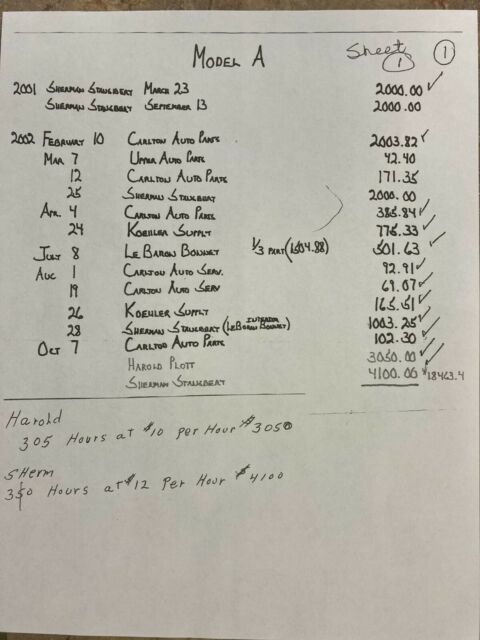 MODEL A Sheet 1 1
2001 SHERMAN STALKBERT MARCH 23 2000.00 ✓
SHERMAN STALKBERT SEPTEMBER 13 2000.00
2002 FEBRUARY 10 CARLTON AUTO PARTS 2003.82 ✓
MAR 7 UPTER AUTO PARTS 42.40
12 CARLTON AUTO PARTS 171.35
25 SHERMAN STALKBERT 2000.00
APR. 4 CARLTON AUTO PARTS 385.84 ✓
24 KOEHLER SUPPLY 776.33 ✓
JULY 8 LE BARON BONNEY 1/3 PART (1504.88) 501.63 ✓
AUG 1 CARLTON AUTO SERV. 92.91 ✓
19 CARLTON AUTO SERV 69.07 ✓
26 KOEHLER SUPPLY 165.51 ✓
28 SHERMAN STALKBERT (LEBORAN BONNEY) INTERIOR 1003.25 ✓
OCT 7 CARLTOO AUTO PARTS 102.30 ✓
HAROLD PLOTT 3050.00 ✓
SHERMAN STALKBERT 4100.00 ✓ 18463.4
Harold
305 Hours at $10 Per Hour $3050
SHerm
350 Hours at $12 Per Hour $4100